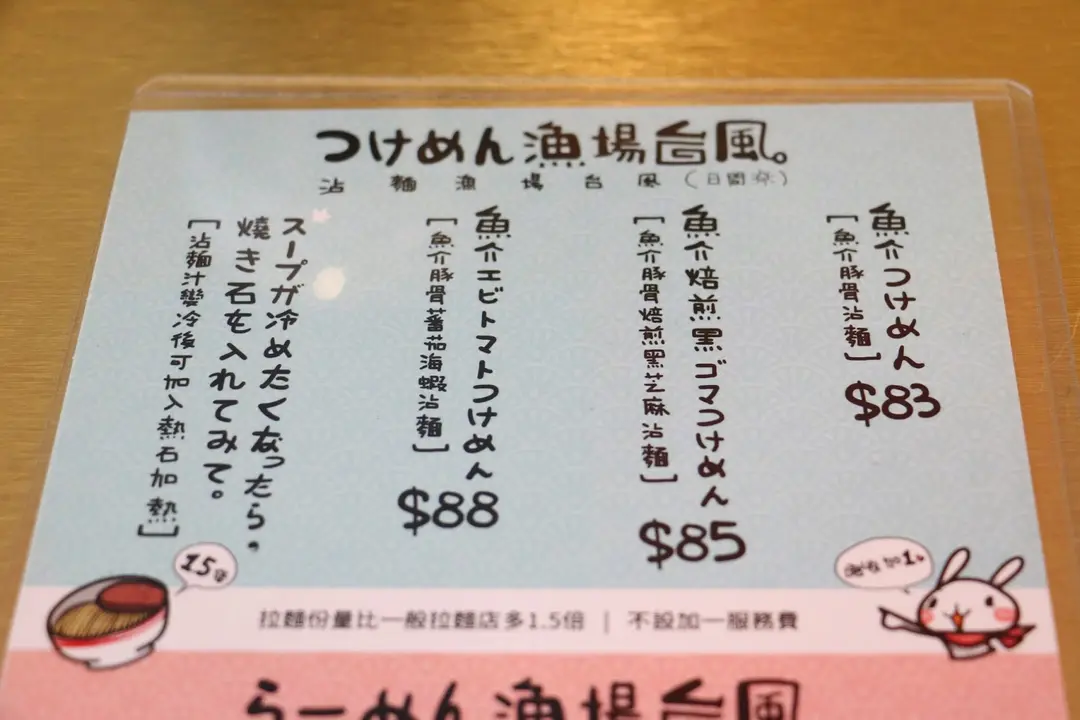 つけめん漁場台風。
沾麵漁場台風(日間祭)
魚介つけめん
[魚介豚骨沾麵]
$83
魚介焙煎黒ゴマつけめん
[魚介豚骨焙煎黑芝麻沾麵]
$85
魚介エビトマトつけめん
[魚介豚骨蕃茄海蝦沾麵]
$88
スープが冷めたくなったら・
焼き石を入れてみて。
[沾麵汁變冷後可加入熱石加熱]
15倍
加1
拉麵份量比一般拉麵店多1.5倍 | 不設加一服務費
らーめん漁場台風